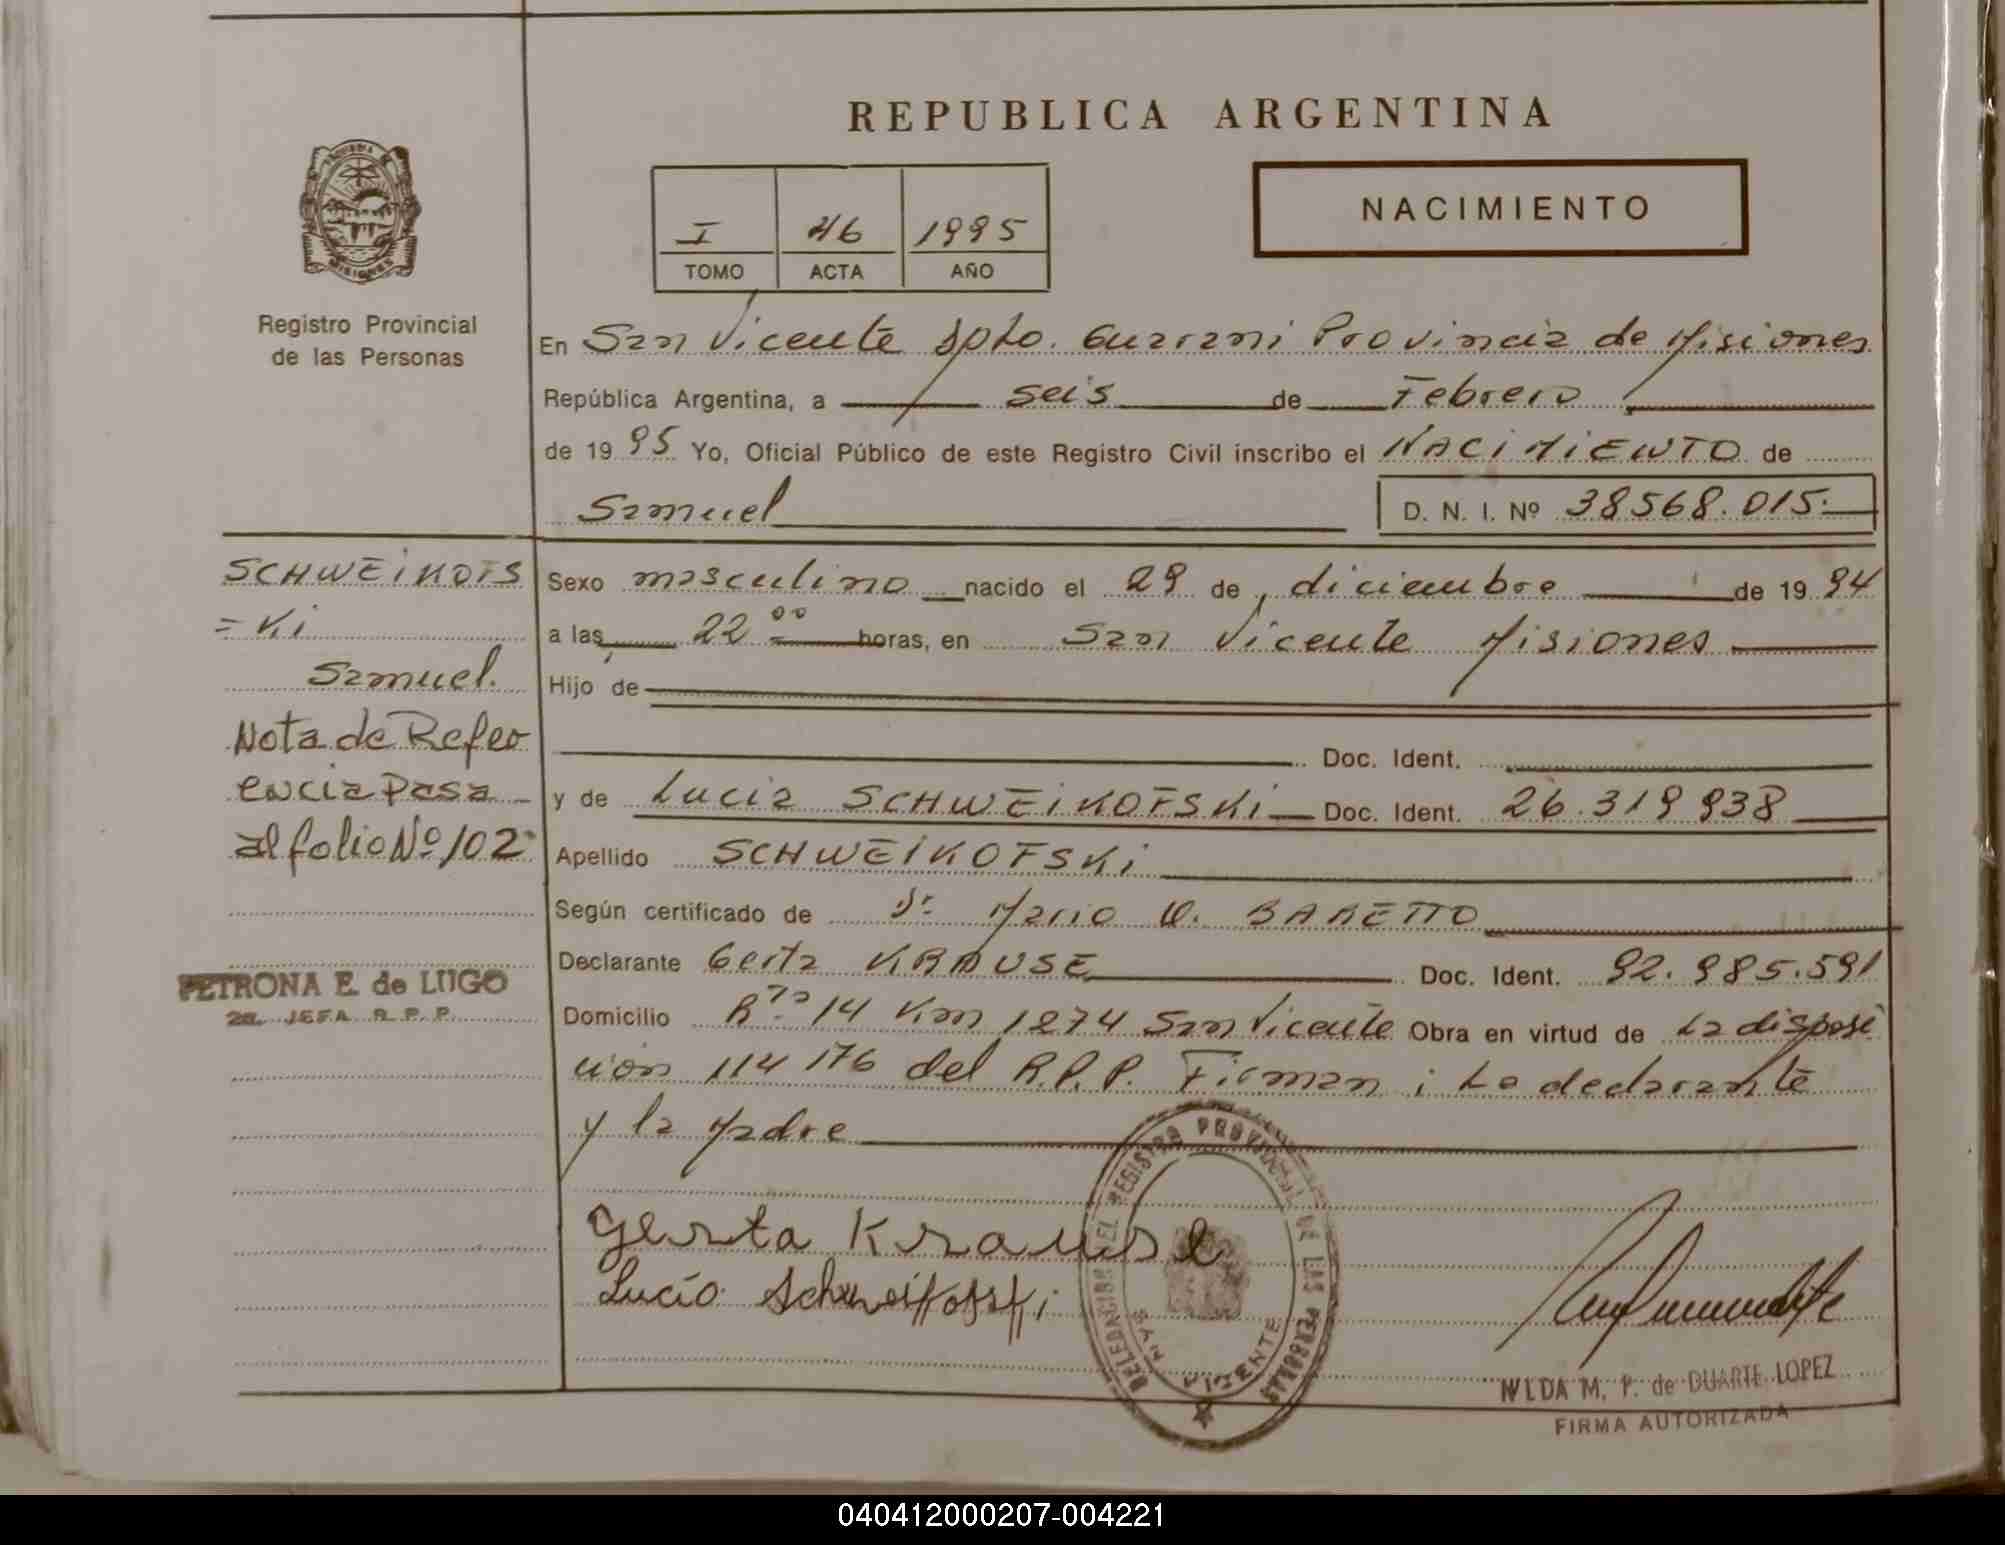 REPUBLICA ARGENTINA
I 46 1995
TOMO ACTA AÑO
NACIMIENTO
MISIONES
Registro Provincial
de las Personas
En San Vicente Dpto. Guarani Provincia de Misiones
República Argentina, a seis de Febrero
de 1995 Yo, Oficial Público de este Registro Civil inscribo el NACIMIENTO de
Samuel D. N. I. Nº 38568.015.
SCHWEIKOFS
= Ki
Samuel.
Nota de Refer
encia Pasa
al folio Nº 102
PETRONA E. de LUGO
2a. JEFA R. P. P.
Sexo masculino nacido el 29 de diciembre de 1994
a las 22 00 horas, en San Vicente Misiones
Hijo de
Doc. Ident.
y de Lucia SCHWEIKOFSKi Doc. Ident. 26.319938
Apellido SCHWEIKOFSKi
Según certificado de Dr Mario O. BARETTO
Declarante Gerta KRAUSE Doc. Ident. 92.985.591
Domicilio Rta 14 Km 1274 San Vicente Obra en virtud de La disposi
ción 114 176 del R.P.P. Firman: La declarante
y la Madre
Gerta Krause
Lucia Schweikofski
DELEGACION DEL REGISTRO PROVINCIAL DE LAS PERSONAS
SAN VICENTE
NILDA M. P. de DUARTE LOPEZ
FIRMA AUTORIZADA
040412000207-004221